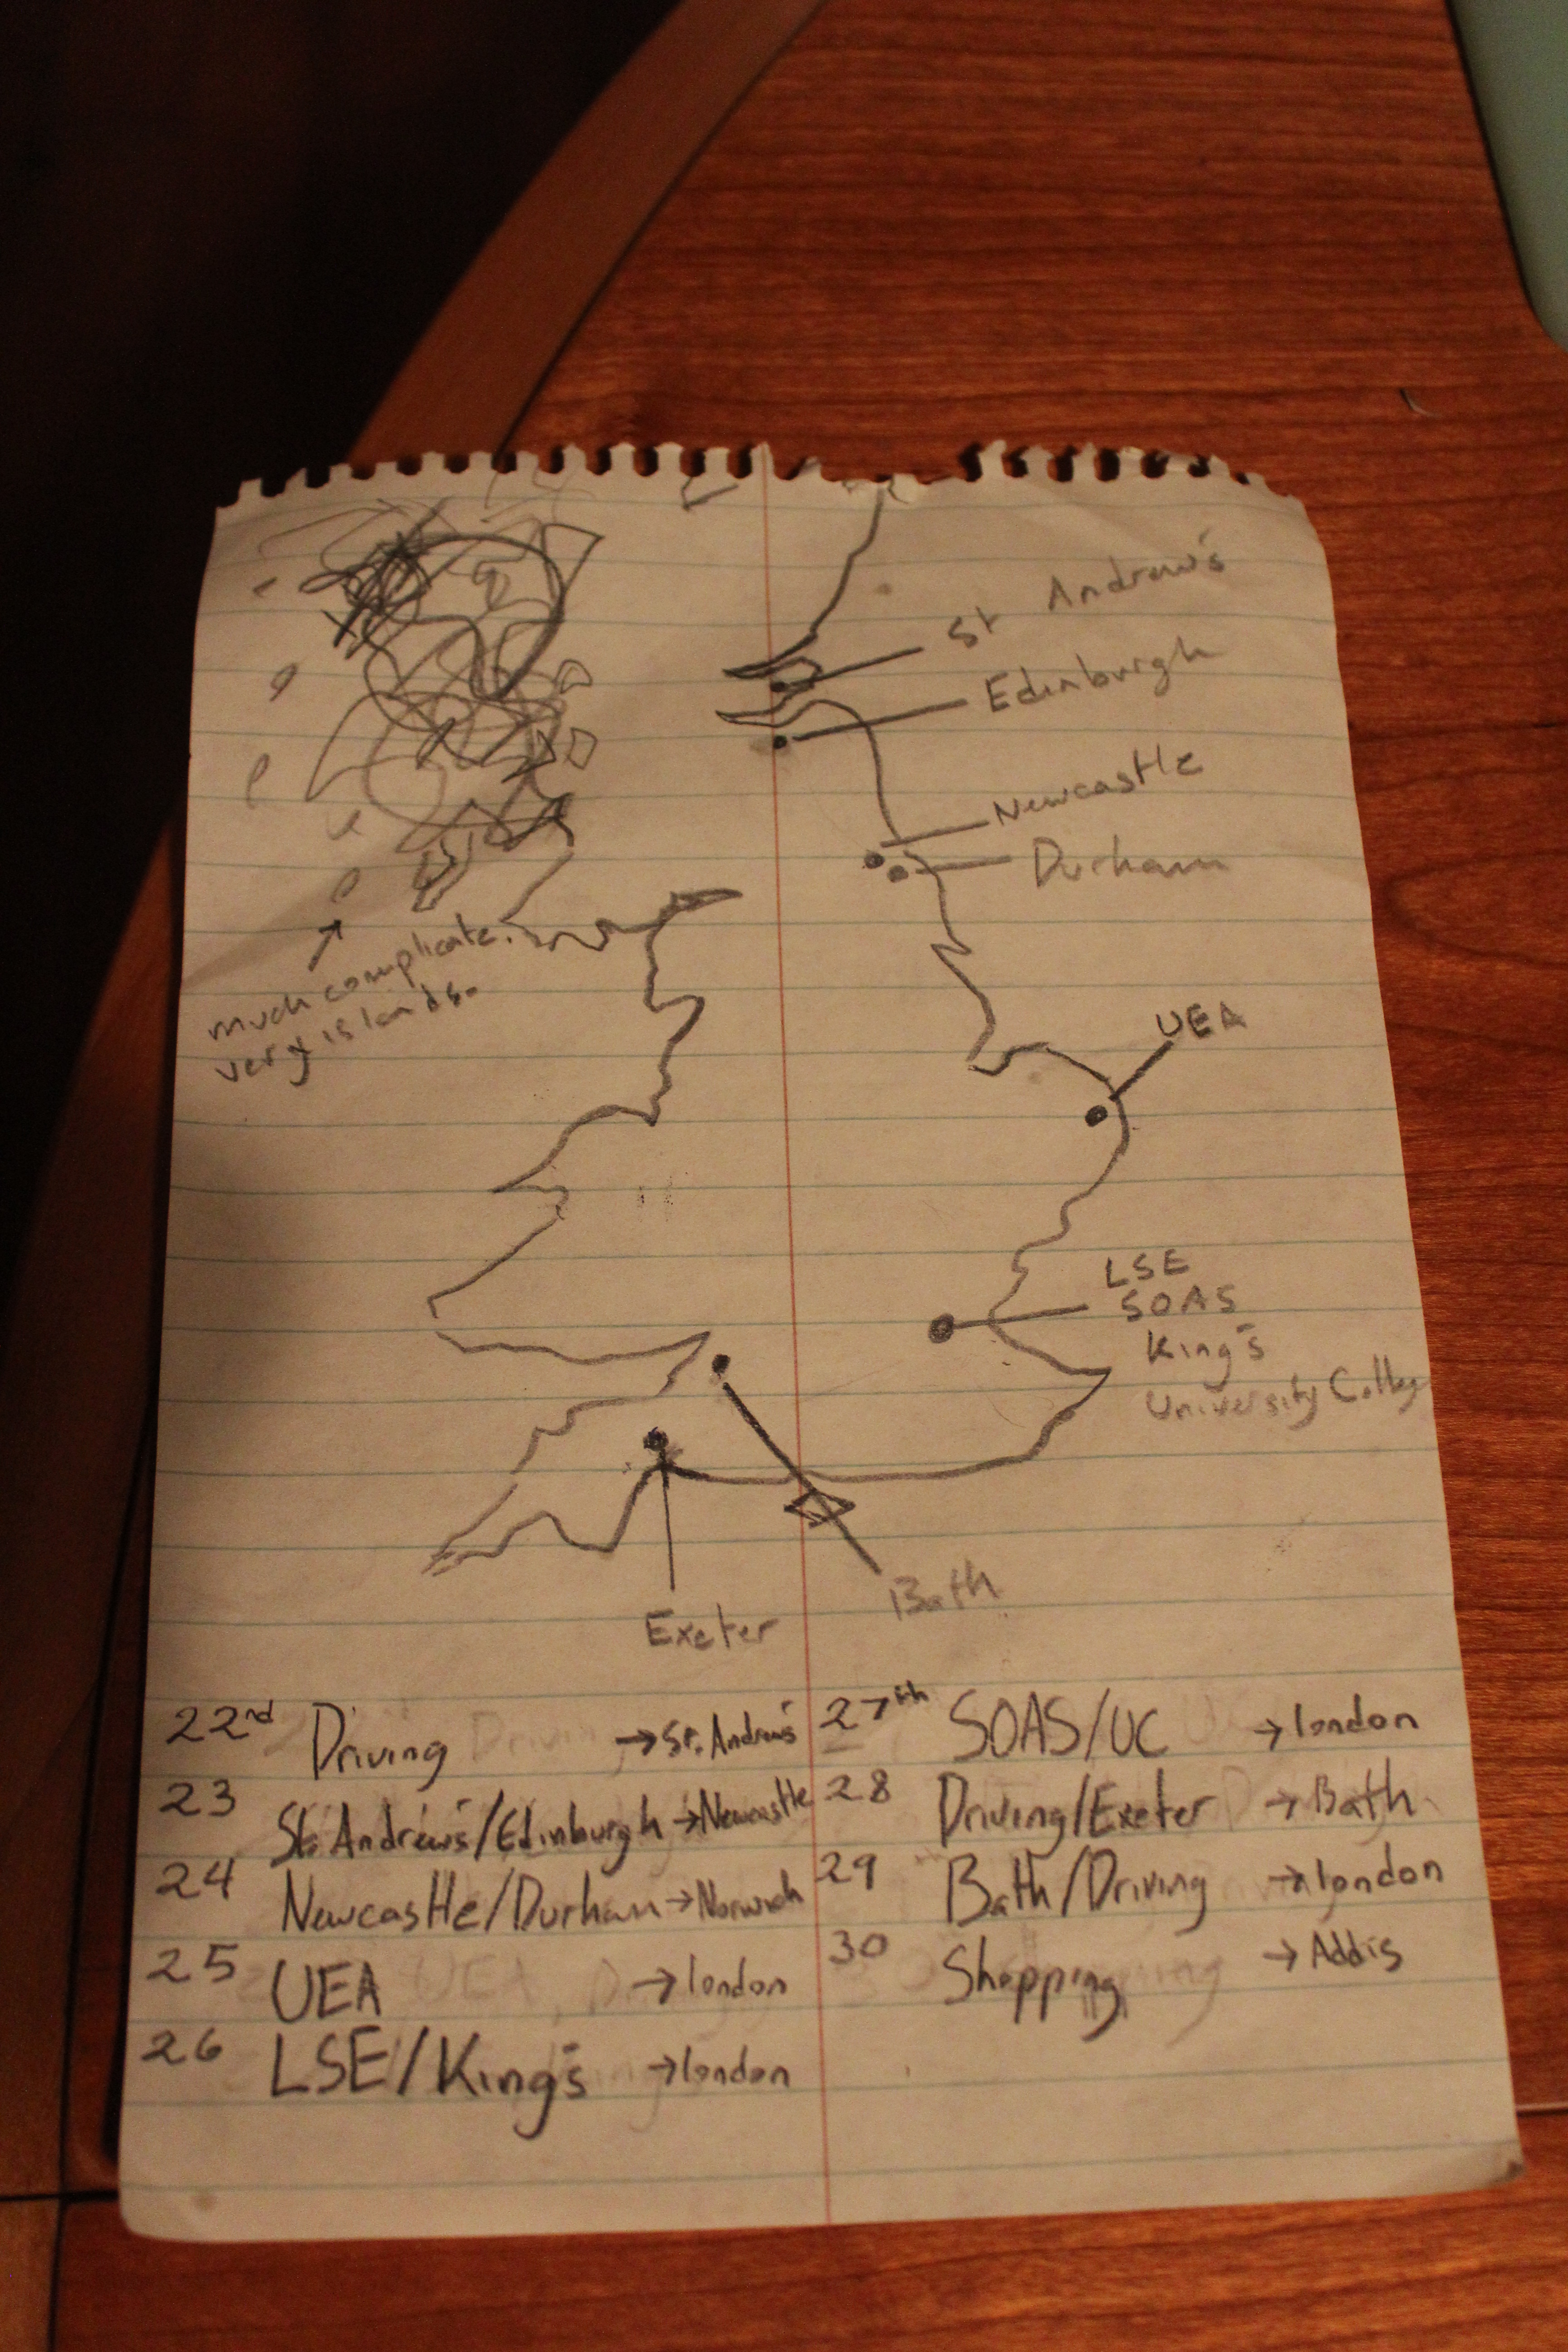 St Andrew's
Edinburgh
Newcastle
Durham
much complicate.
very islands.
UEA
LSE
SOAS
King's
University College
Bath
Exeter
22nd Driving → St. Andrew's
23 St. Andrew's/Edinburgh → Newcastle
24 Newcastle/Durham → Norwich
25 UEA → london
26 LSE/King's → london
27th SOAS/UC → london
28 Driving/Exeter → Bath
29 Bath/Driving → london
30 Shopping → Addis